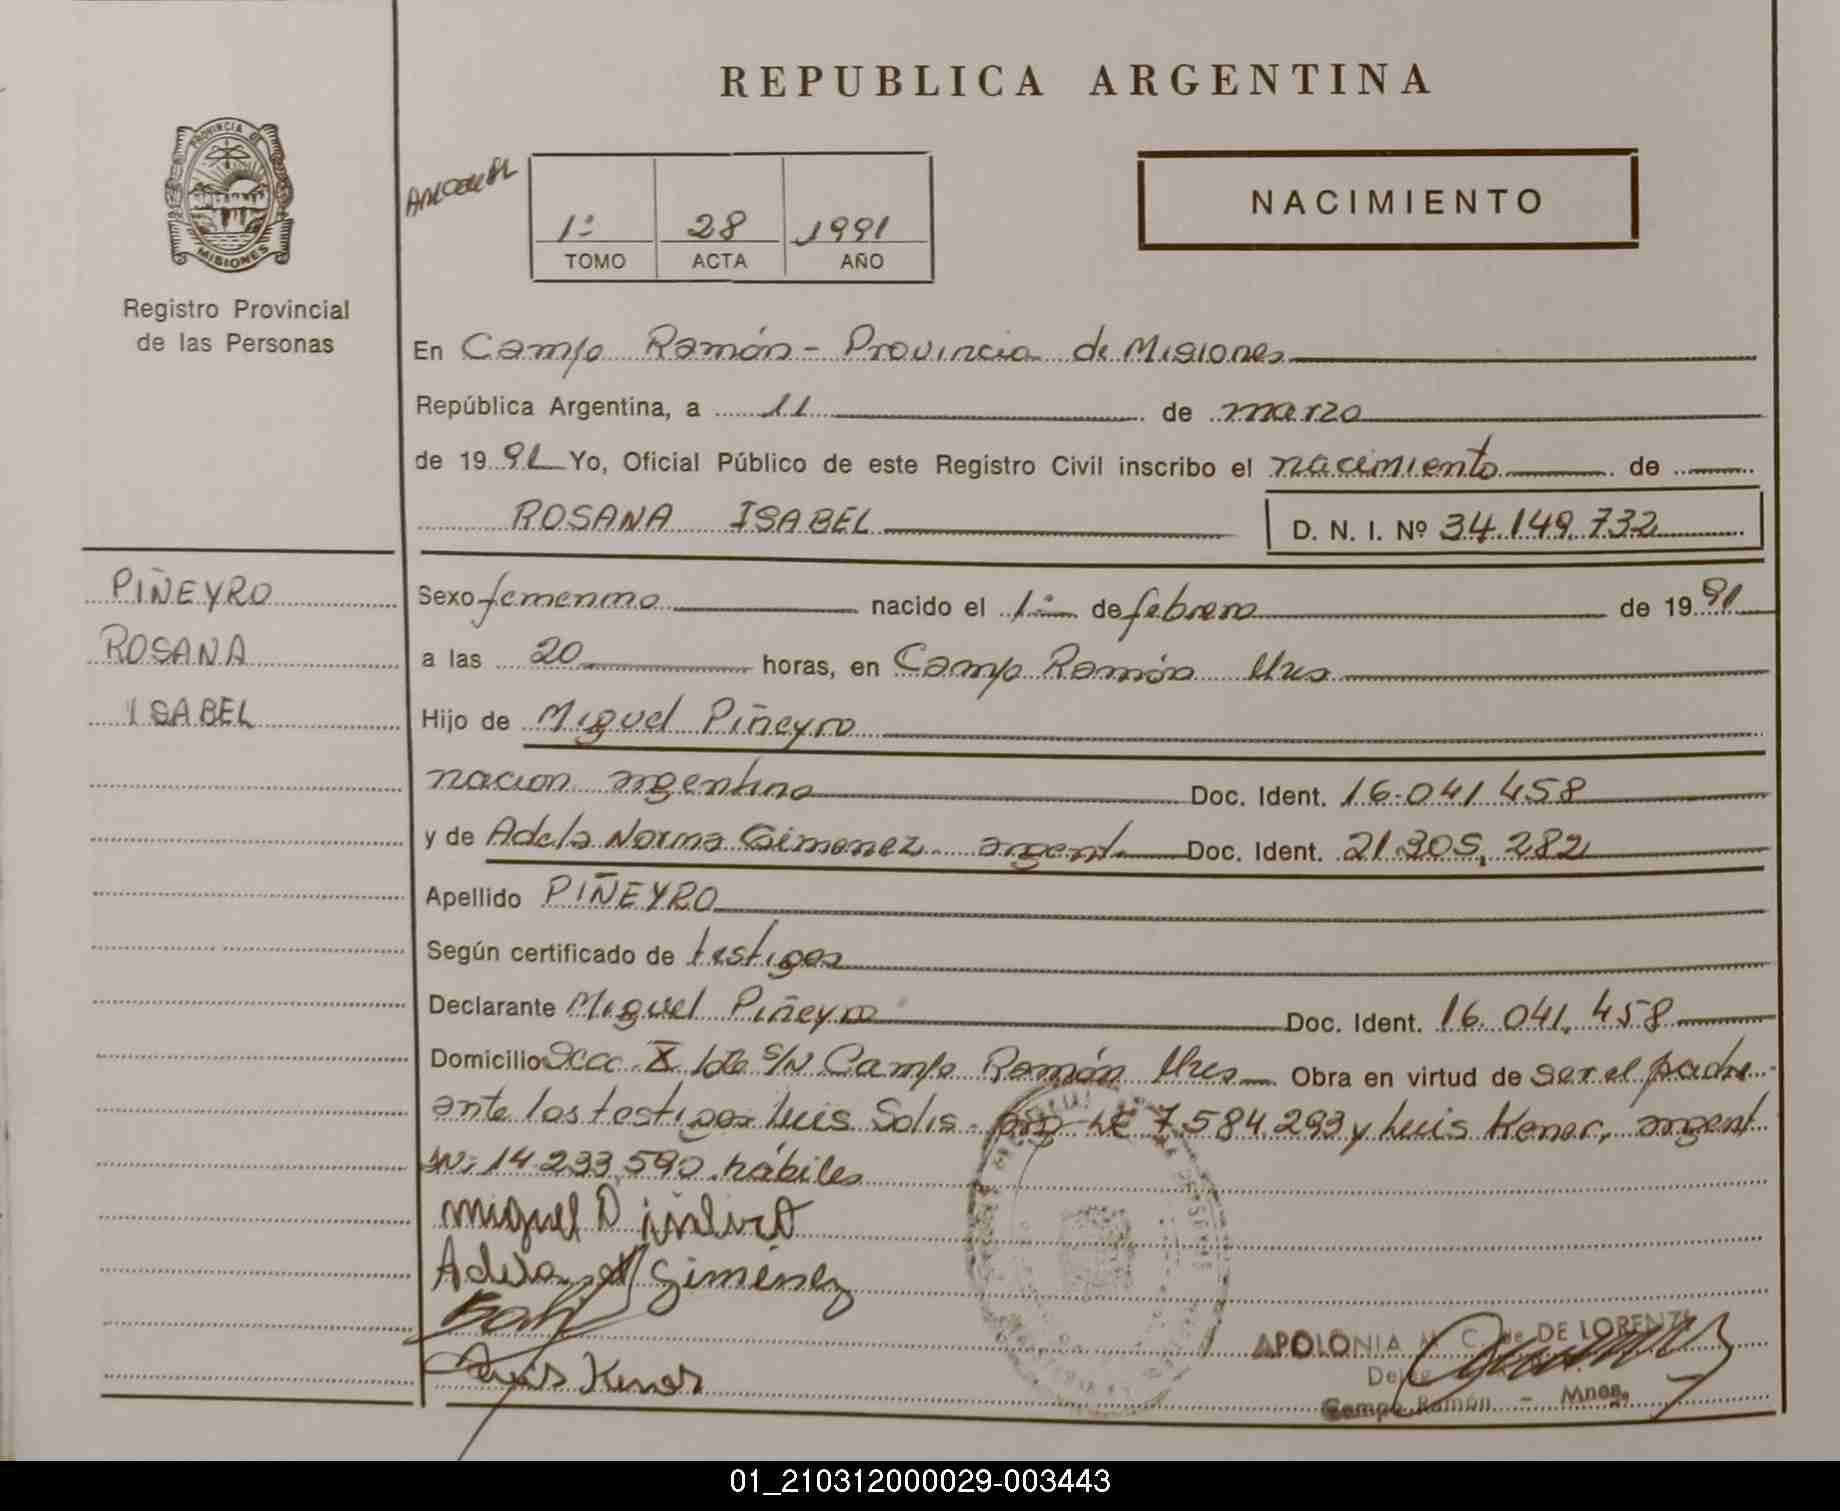 REPUBLICA ARGENTINA
PROVINCIA DE
MISIONES
Registro Provincial
de las Personas
1º 28 1991
TOMO ACTA AÑO
NACIMIENTO
En Campo Ramón - Provincia de Misiones
República Argentina, a 11 de marzo
de 1991 Yo, Oficial Público de este Registro Civil inscribo el nacimiento de
ROSANA ISABEL D. N. I. Nº 34.149.732
PIÑEYRO
ROSANA
ISABEL
Sexo femenino nacido el 1º de febrero de 1991
a las 20 horas, en Campo Ramón Mnes
Hijo de Miguel Piñeyro
nacion argentina Doc. Ident. 16.041.458
y de Adela Norma Gimenez argent. Doc. Ident. 21.305.282
Apellido PIÑEYRO
Según certificado de testigos
Declarante Miguel Piñeyro Doc. Ident. 16.041.458
Domicilio Secc. X lote S/N Campo Ramón Mnes Obra en virtud de ser el padre
ante los testigos Luis Solis arg LE 7.584.293 y Luis Kener, argent
14.233.590 hábiles
Miguel Piñeiro
Adela N Giménez
Luis Kener
APOLONIA M. C. de DE LORENZI
Campo Ramón - Mnes.
01_210312000029-003443